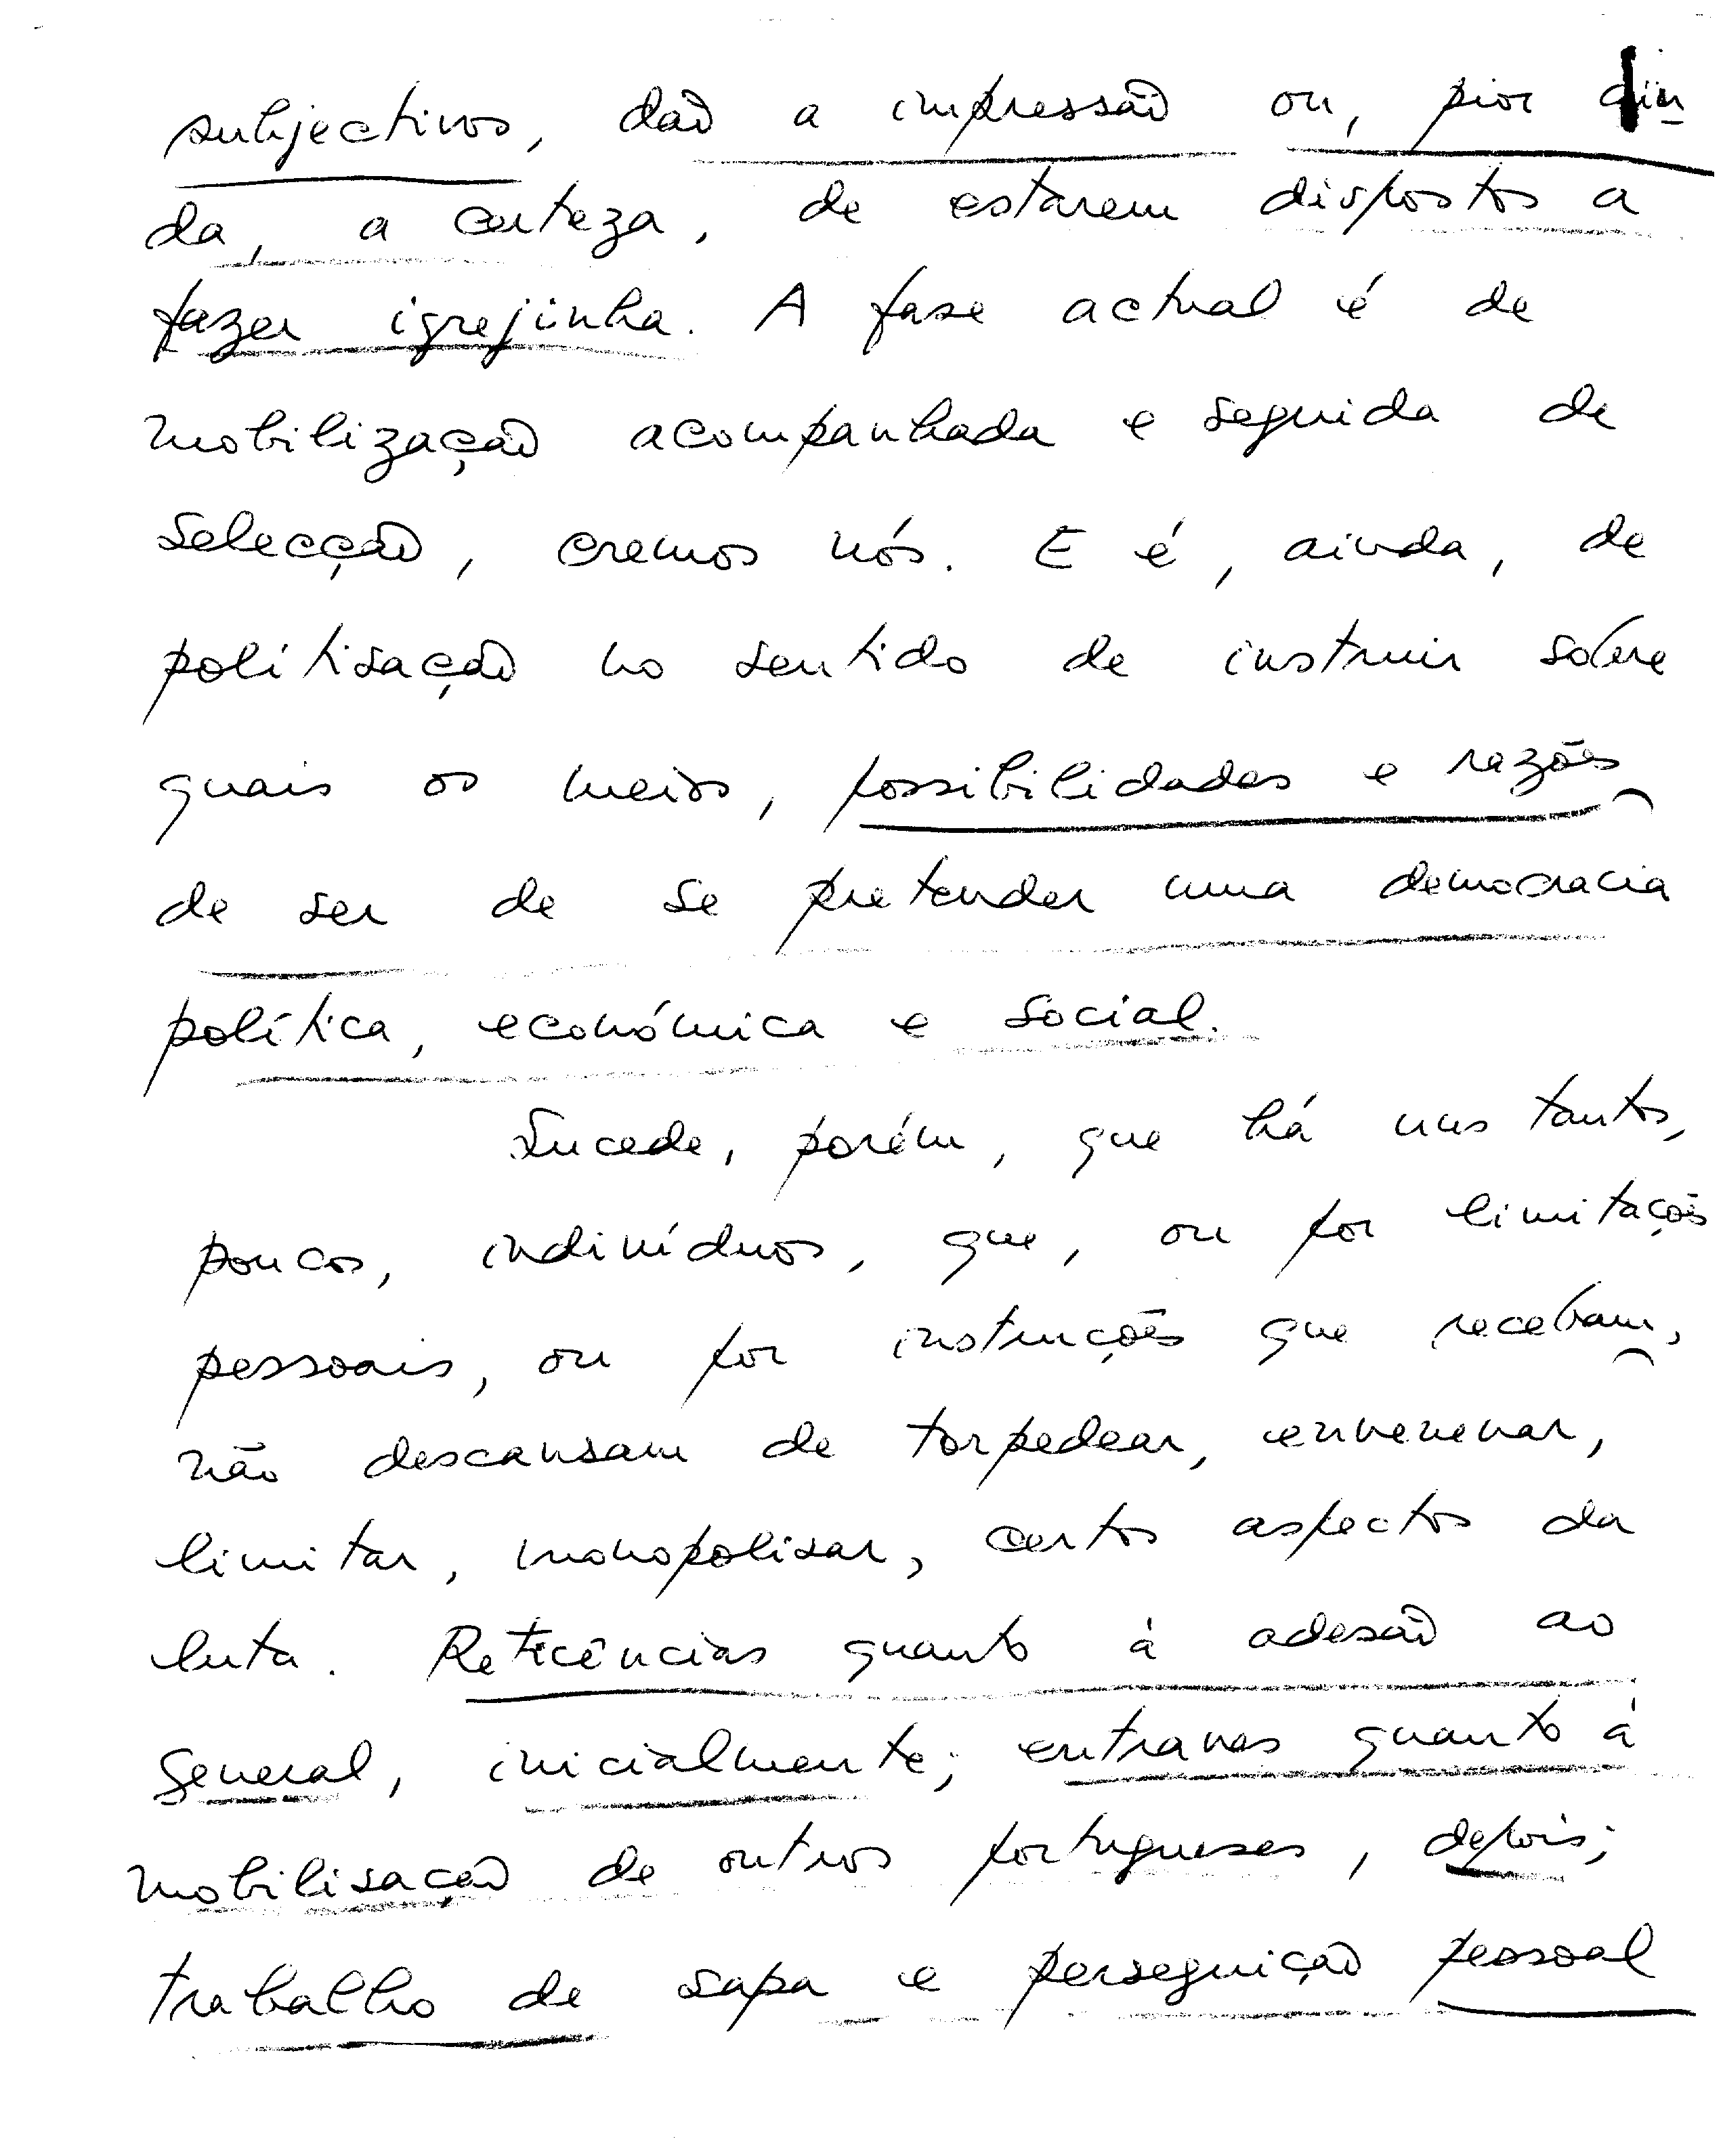 subjectivos, dão a impressão ou, pior ain
da, a certeza, de estarem dispostos a
fazer igrejinha. A fase actual é de
mobilização acompanhada e seguida de
selecção, cremos nós. E é, ainda, de
politisação no sentido de instruir sobre
quais os meios, possibilidades e razões
de ser de se pretender uma democracia
política, económica e social.
Sucede, porém, que há uns tantos,
poucos, indivíduos, que, ou por limitações
pessoais, ou por instruções que recebam,
não descansam de torpedear, envenenar,
limitar, monopolisar, certos aspectos da
luta. Reticências quanto à adesão ao
General, inicialmente; entraves quanto à
mobilisação de outros portugueses, depois;
trabalho de sapa e perseguição pessoal